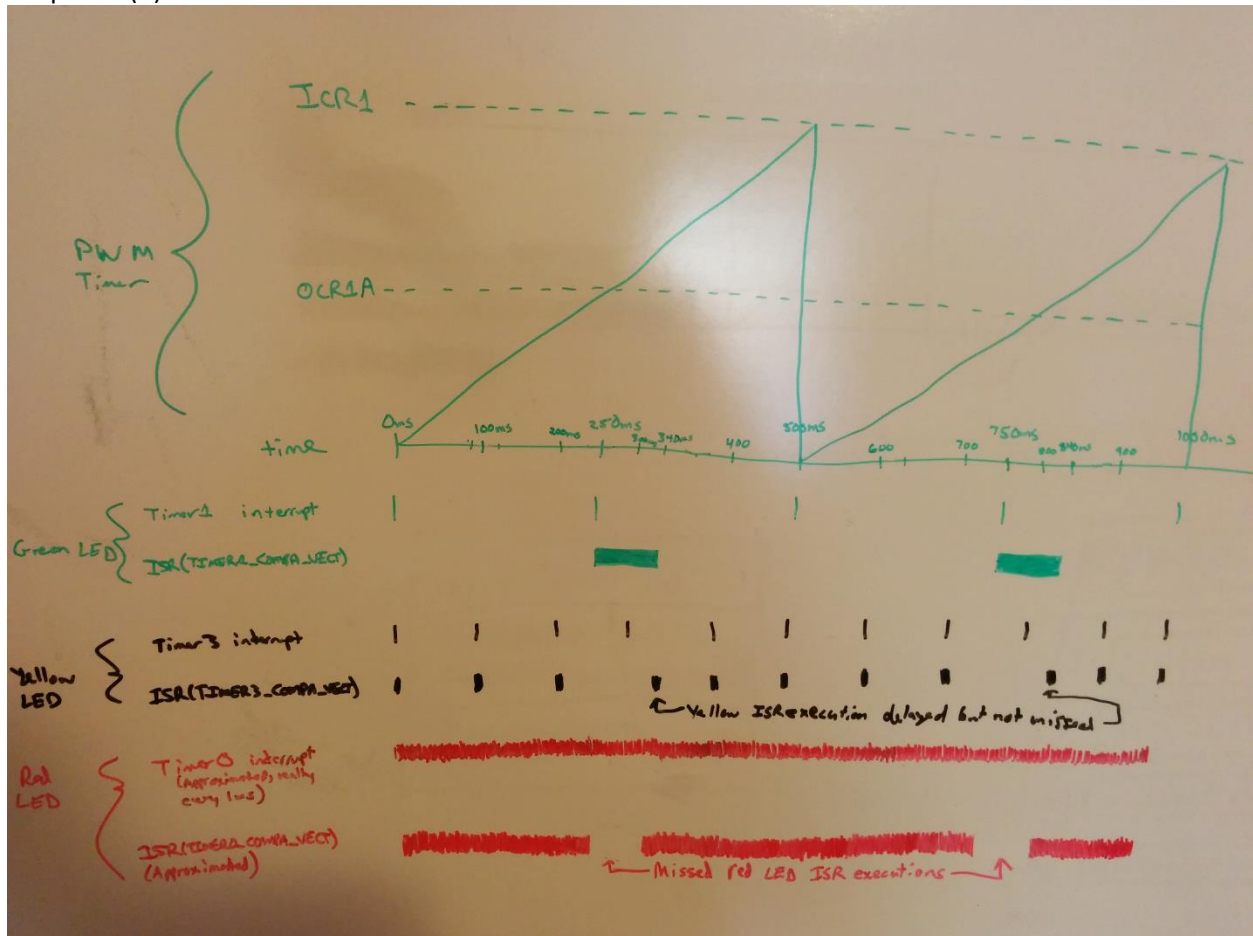 ICR1
PWM
Timer
OCR1A
time
0ms
100ms
200ms
250ms
340ms
400
500ms
600
700
750ms
800
840ms
900
1000ms
Green LED
Timer1 interrupt
Yellow
LED
Timer3 interrupt
ISR(TIMER3_COMPA_VECT)
Yellow ISR execution delayed but not missed
Red
LED
Timer0 interrupt
(Approximated, really
every 1ms)
(Approximated)
Missed red LED ISR executions